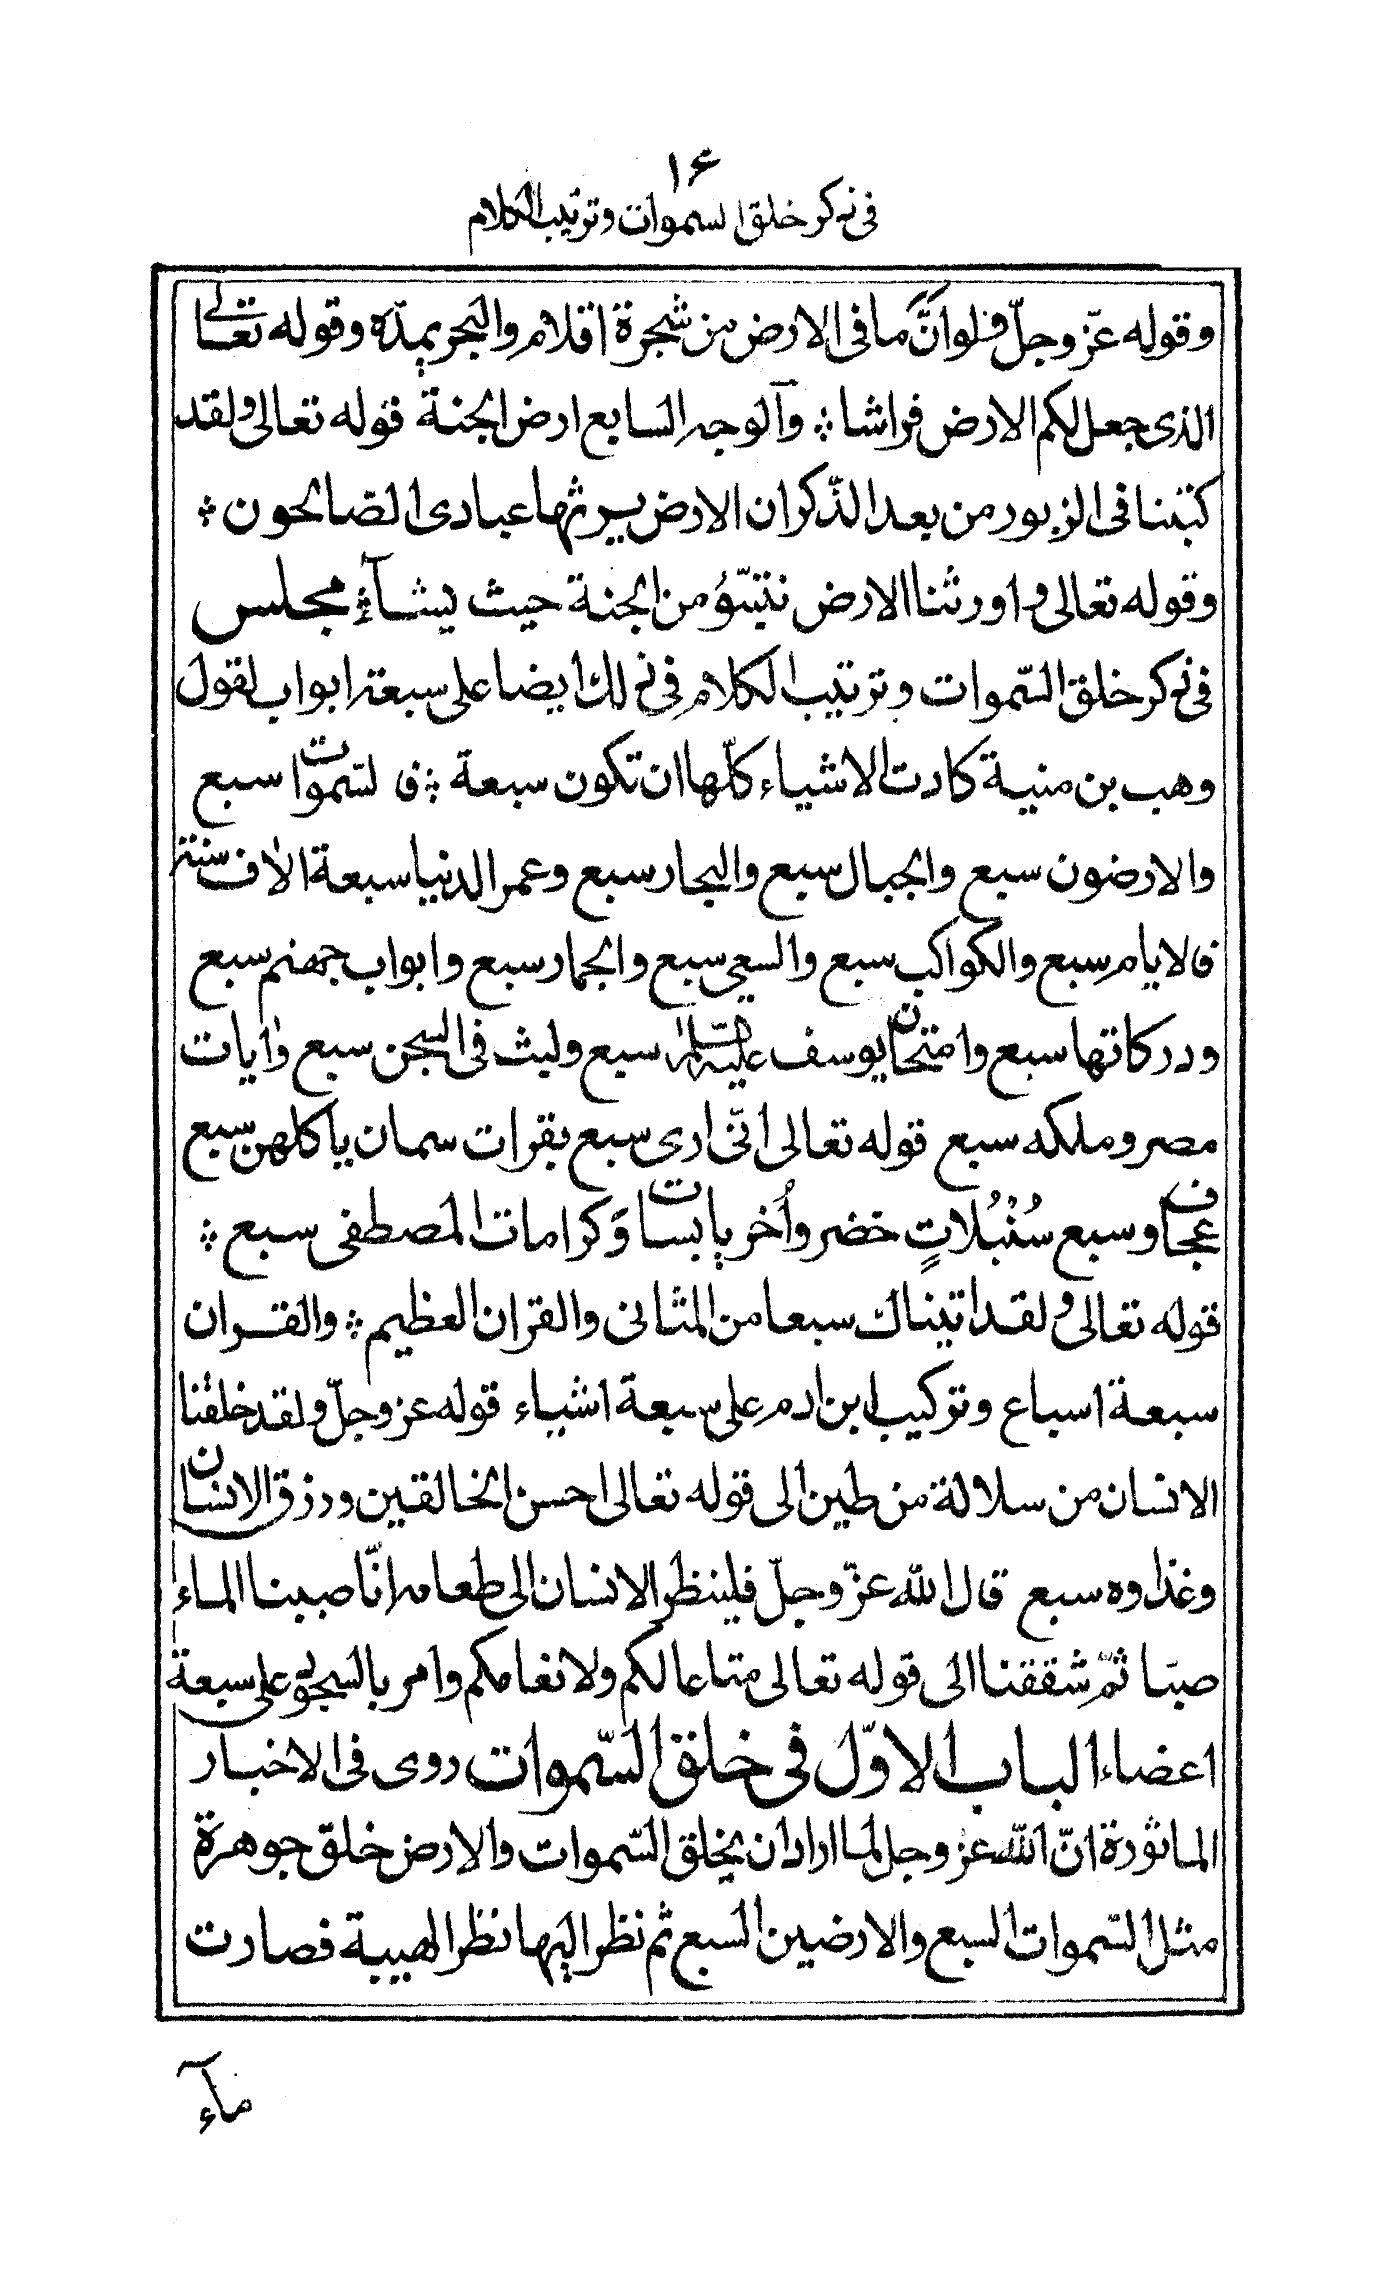 ١۶
فى ذكر خلق السموات وترتيب الكلام
وقوله عزّ وجلّ فلو انّ ما فى الارض من شجرة اقلام والبحر يمدّه وقوله تعالى
الذى جعل لكم الارض فراشا ؞ والوجه السابع ارض الجنة قوله تعالى ولقد
كتبنا فى الزبور من بعد الذّكر ان الارض يرثها عبادى الصالحون ؞
وقوله تعالى واورثنا الارض نتبوّؤ من الجنة حيث يشآء مجلس
فى ذكر خلق السّموات وترتيب الكلام فى ذلك ايضا على سبعة ابواب لقول
وهب بن منية كادت الاشياء كلّها ان تكون سبعة ؞ فالسّموات سبع
والارضون سبع والجبال سبع والبحار سبع وعمر الدنيا سبعة الاف سنة
فالايام سبع والكواكب سبع والسعى سبع والجمار سبع وابواب جهنم سبع
ودركاتها سبع وامتحان يوسف عليه السلام سبع ولبث فى السجن سبع وايات
مصر وملكه سبع قوله تعالى انّى ارى سبع بقرات سمان ياكلهن سبع
عجاف وسبع سُنْبُلاتٍ خضر واُخر يابسات وَكرامات المصطفى سبع ؞
قوله تعالى ولقد اتيناك سبعا من المثانى والقران العظيم ؞ والقران
سبعة اسباع وتركيب ابن ادم على سبعة اشياء قوله عز وجلّ ولقد خلقنا
الانسان من سلالة من طين الى قوله تعالى احسن الخالقين ورزق الانسان
وغذاوه سبع قال الله عزّ وجلّ فلينظر الانسان الى طعامه انّا صببنا الماء
صبّا ثمّ شققنا الى قوله تعالى متاعا لكم ولانعامكم وامر بالسجود على سبعة
اعضاء الباب الاوّل فى خلق السّموات روى فى الاخبار
الماثورة انّ الله عز وجل لما اراد ان يخلق السّموات والارض خلق جوهرة
مثل السّموات السبع والارضين السبع ثم نظر اليها نظر الهيبة فصارت
مآء